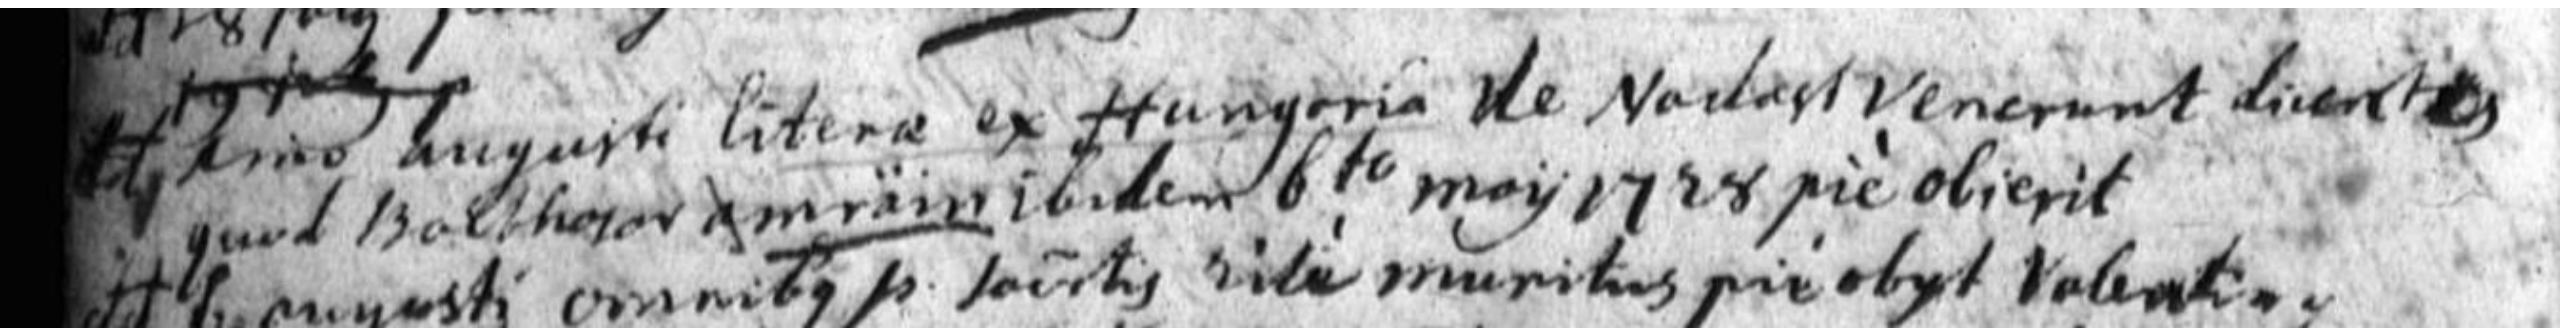 28 july
19 july
1mo augusti literæ ex Hungaria de Nadast Venerunt dicentes
quod Balthasar amräin ibidem 6to maij 1728 piè obierit
augusti omnibq s. sacrtis ritè munitus piè obijt Valentiny